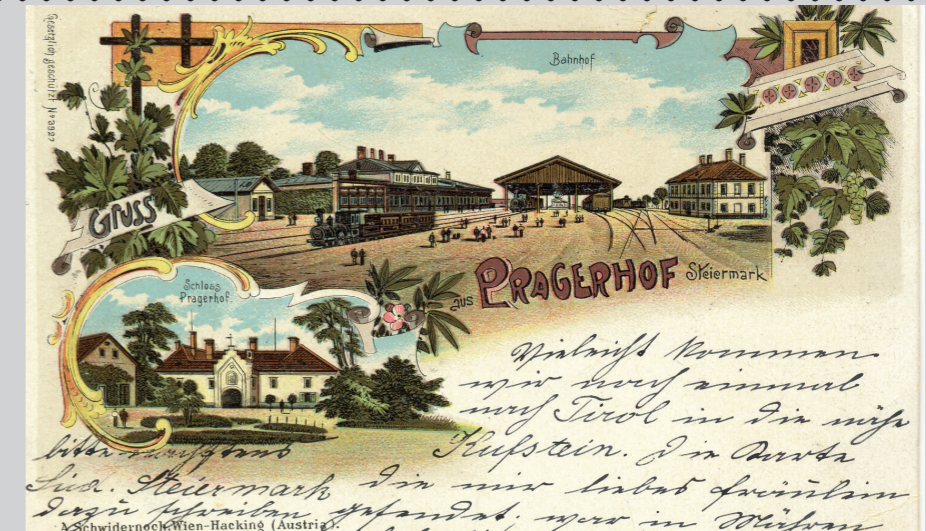 Gesetzlich geschützt No 3927
Bahnhof
GRUSS
aus PRAGERHOF Steiermark
Schloss
Pragerhof.
Vieleicht kommen
wir noch einmal
nach Tirol in die nähe
Kufstein. Die Karte
bitte
Steiermark die mir liebes fräulein
dazu schreiben gesendet, war in Mähren
A. Schwidernoch, Wien-Hacking (Austria).